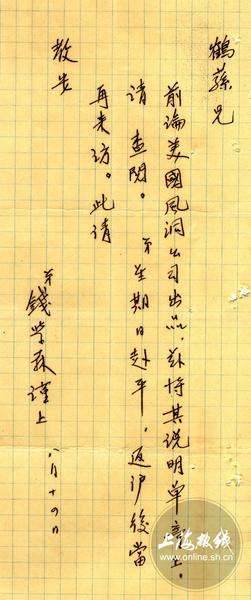 鶴蓀兄
前論美國風洞公司出品，茲將其说明單寄上。
请查閱。弟星期日赴平，返沪後當
再来訪。此请
教安
弟錢学森謹上
八月十四日
上海熱线
www.online.sh.cn